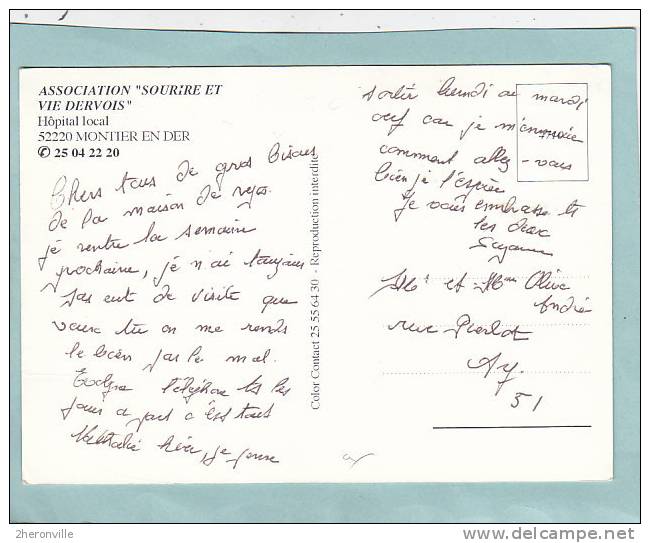 ASSOCIATION "SOURIRE ET
VIE DERVOIS"
Hôpital local
52220 MONTIER EN DER
✆ 25 04 22 20
Chers tous de gros bisous
de la maison de repos.
je rentre la semaine
prochaine, je n'ai toujours
pas eut de visite que
veux tu on me rends
le bien par le mal.
téléphone ts les
jours a part c'est tout
Nathalie hier, je pense
sortir lundi ou mardi
ouf car je m'ennuie
comment allez-vous
bien je l'espère
Je vous embrasse ts
les deux
Suzanne
Mr et Mme Olive
André
rue Pierlot
Ay.
51
Color Contact 25 55 64 30 - Reproduction interdite
2heronville
delcampe.net